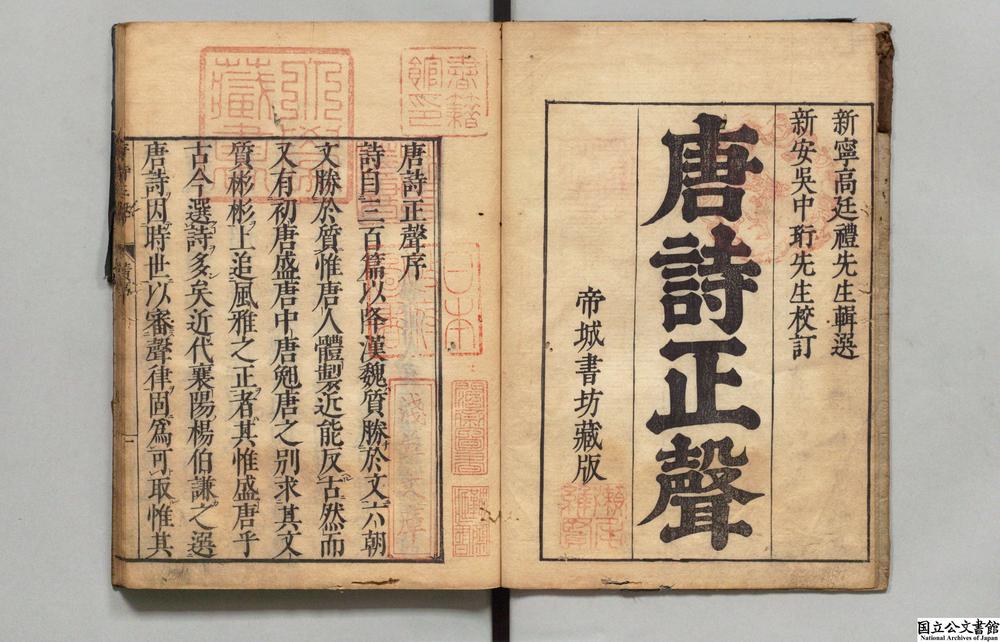 新寧高廷禮先生輯選
新安吳中珩先生校訂
唐詩正聲
帝城書坊藏版
唐詩正聲序
詩自三百篇以降漢魏質勝於文六朝
文勝於質惟唐人體製近能反古然而
又有初唐盛唐中唐晚唐之別求其文
質彬彬上追風雅之正者其惟盛唐乎
古今選詩多矣近代襄陽楊伯謙之選
唐詩因時世以審聲律固爲可取惟其
書籍館印
日本
藏書
国立公文書館
National Archives of Japan